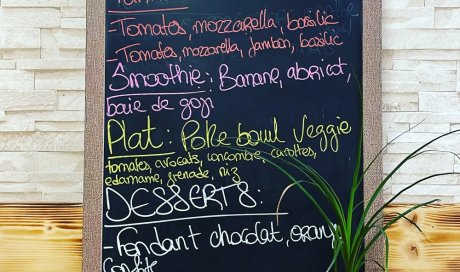 -Tomates, mozzarella, basilic
-Tomates, mozzarella, jambon, basilic
Smoothie: Banane, abricot,
baie de goji
Plat: Poke bowl Veggie
tomates, avocats, concombre, carottes,
edamame, grenade, riz
DESSERTS:
-Fondant chocolat, orange
confite